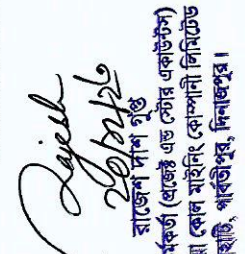 Rajesh
রাজেশ দাশ গুপ্ত
র্মকর্তা (প্রজেক্ট এন্ড স্টোর একাউন্টস)
য়া কোল মাইনিং কোম্পানী লিমিটেড
পার্বতীপুর, দিনাজপুর।